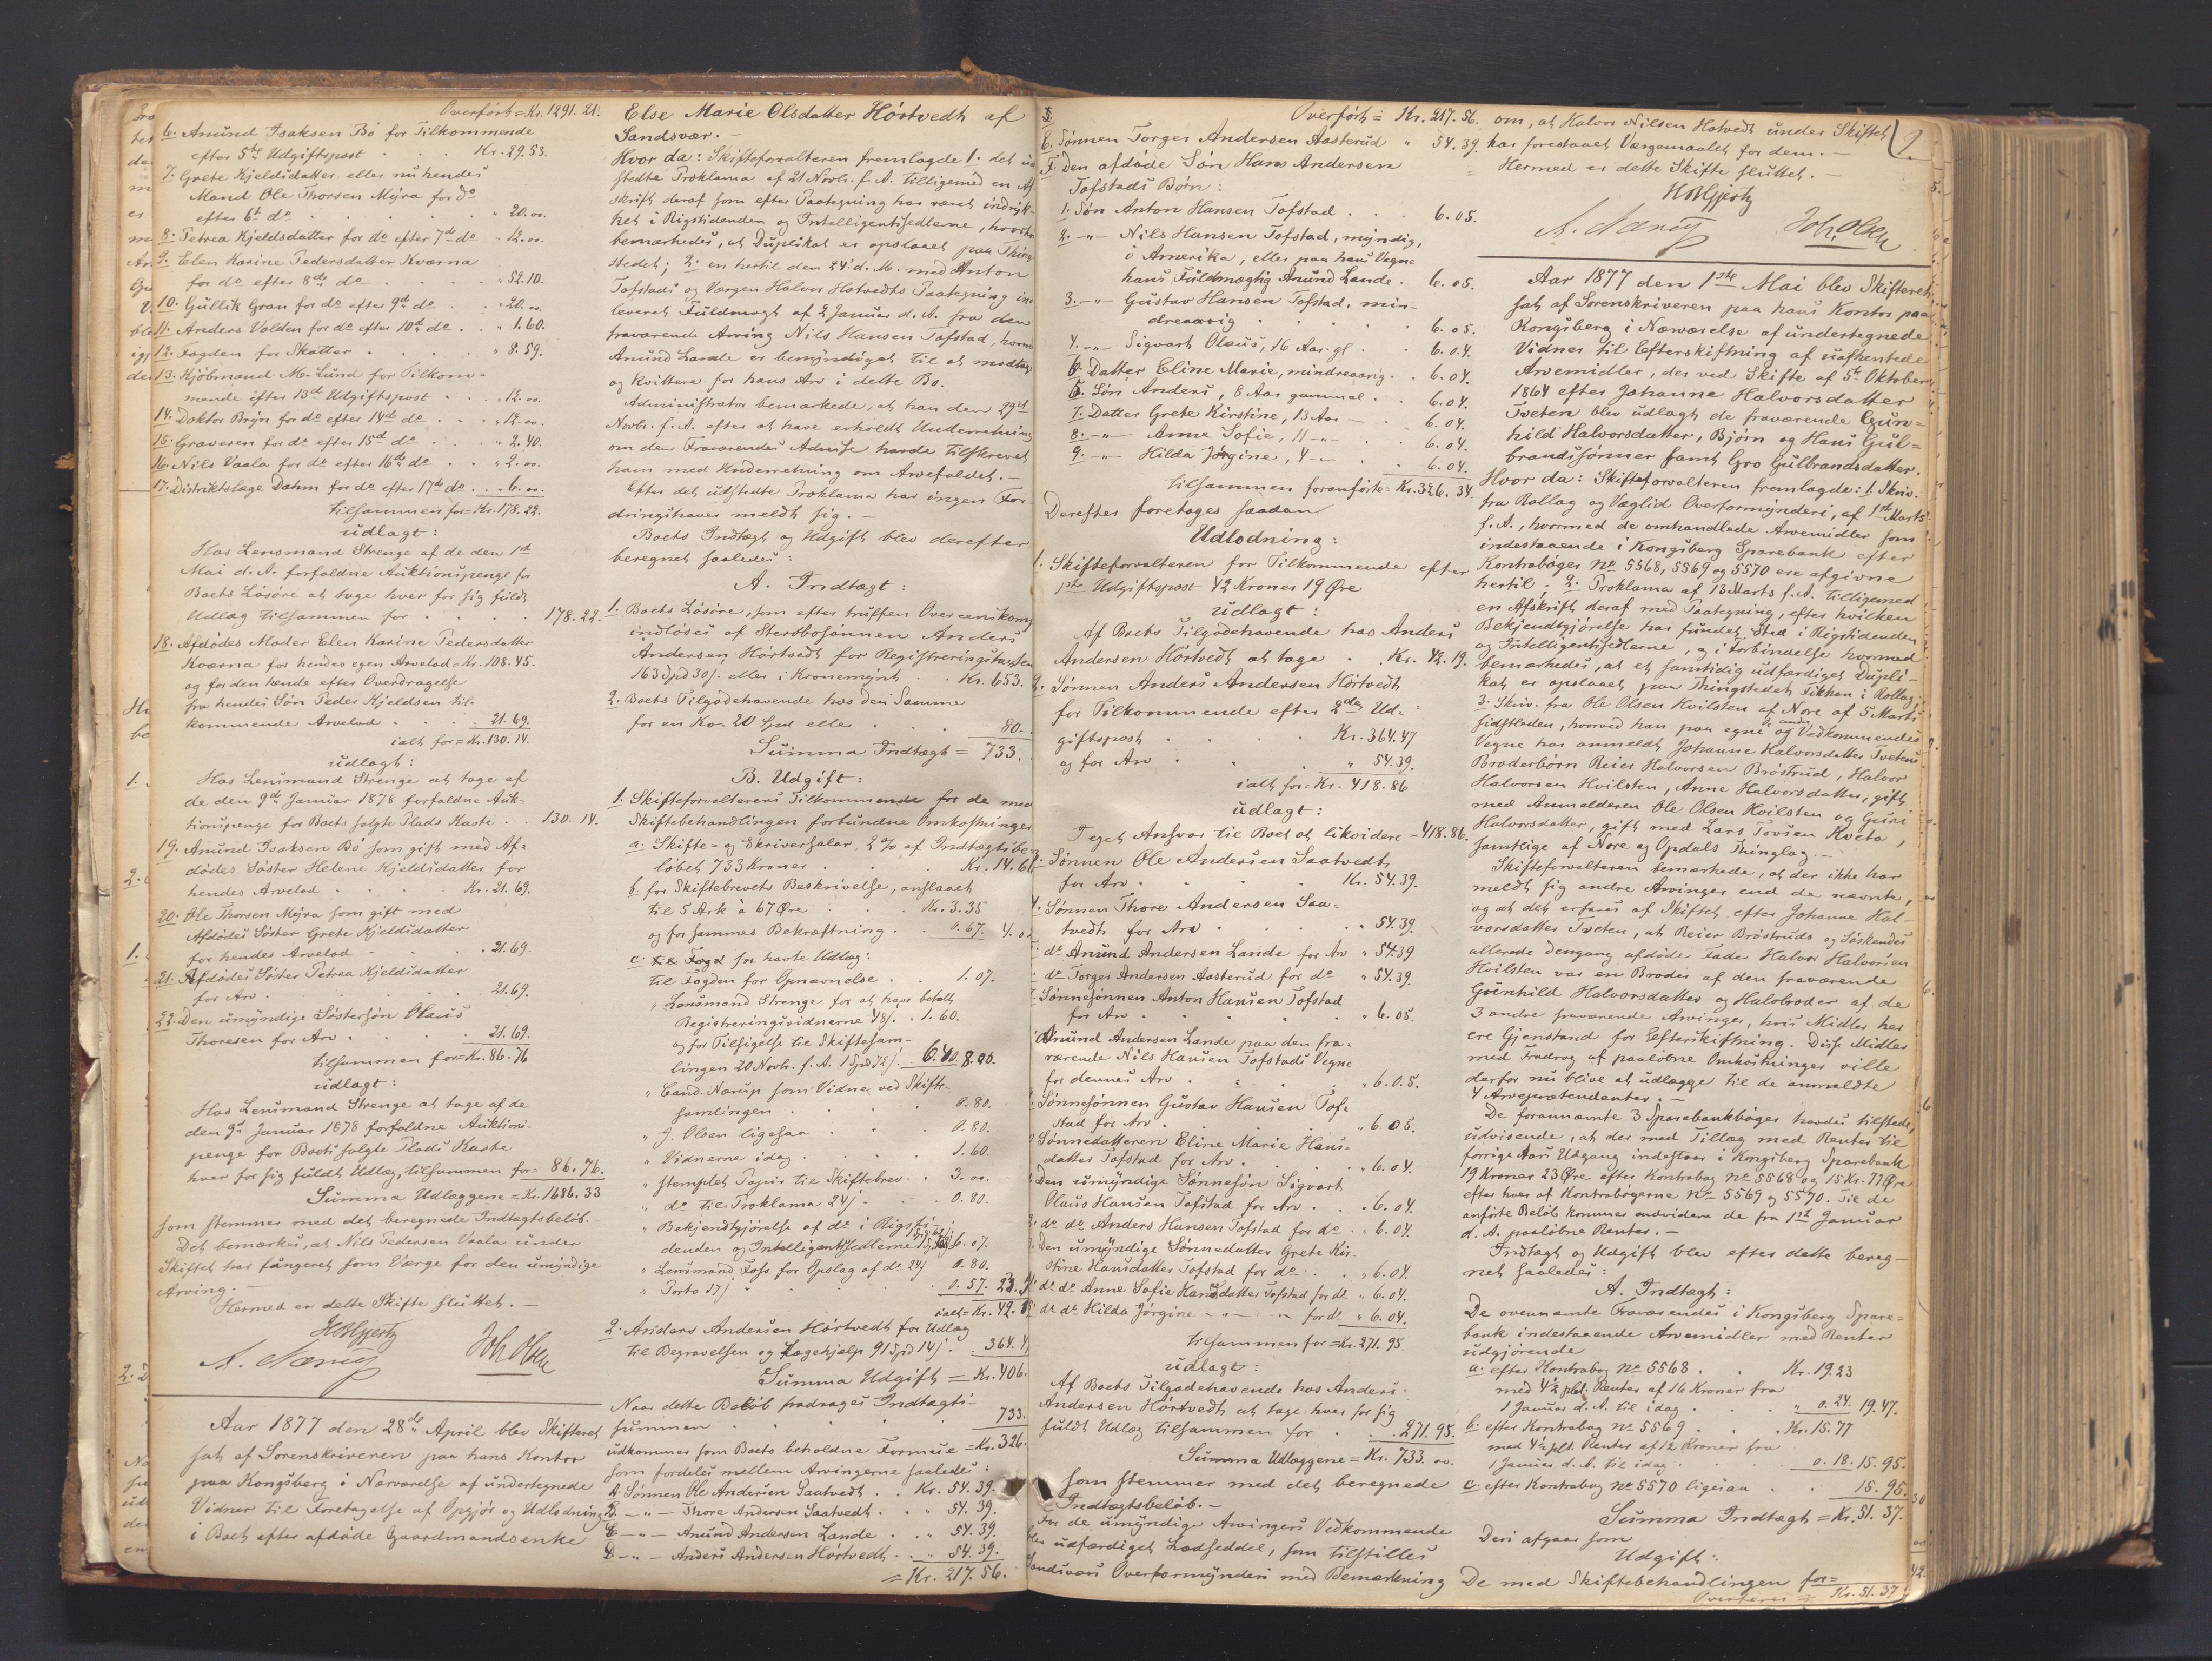 Overført = Kr. 1291. 21.
6. Anund Isaksen Bö for Tilkommende
efter 5te Udgiftspost . . . Kr. 29.53.
7. Grete Kjeldsdatter eller nu hendes
Mand Ole Thorsen Myra for do
efter 6te do . . . . . " 20. oo.
8. Petrea Kjeldsdatter for do efter 7de do " 12. oo.
9. Elen Karine Pedersdatter Kværna
for do efter 8de do . . . . " 52.10.
10. Gullik Gran for do efter 9de do . . " 20. oo.
11. Anders Volden for do efter 10de do . . " 1.60.
12. Fogden for Skatter . . . . " 8.59.
13. Kjöbmand M. Lund for Tilkom-
mende efter 13de Udgiftspost . . . " 12. oo.
14. Doktor Bryn for do efter 14de do . . " 12. oo.
15. Graveren for do efter 15de do . . . " 2.40.
16. Nils Vaala for do efter 16de do . . " 2. oo.
17. Distriktslæge Dahm for do efter 17de do . . " 6. oo.
tilsammen for = Kr. 178.22.
udlagt:
Hos Lensmand Strenge af de den 1ste
Mai d. A. forfaldne Auktionspenge for
Boets Lösöre at tage hver for sig fuldt
Udlæg tilsammen for . . . . 178.22.
18. Afdödes Moder Elen Karine Pedersdatter
Kværna for hendes egen Arvelod = Kr. 108.45.
og for den hende efter Overdragelse
fra hendes Sön Peder Kjeldsen til-
kommende Arvelod . . . . 21.69.
ialt for = Kr. 130.14.
udlagt:
Hos Lensmand Strenge at tage af
de den 9de Januar 1878 forfaldne Auk-
tionspenge for Boets solgte Plads Kaste . . 130.14.
19. Anund Isaksen Bö som gift med Af-
dödes Söster Helene Kjeldsdatter for
hendes Arvelod . . . . Kr. 21.69.
20. Ole Thorsen Myra som gift med
Afdödes Söster Grete Kjeldsdatter
for hendes Arvelod . . . . 21.69.
21. Afdödes Söster Petrea Kjeldsdatter
for Arv . . . . . . 21.69.
22. Den umyndige Söstersön Olaus
Thoresen for Arv . . . . 21.69.
tilsammen for = Kr. 86.76
udlagt:
Hos Lensmand Strenge at tage af de
den 9de Januar 1878 forfaldne Auktions-
penge for Boets solgte Plads Kaste
hver for sig fuldt Udlæg, tilsammen for = 86.76.
Summa Udlæggene = Kr. 1686.33
som stemmer med det beregnede Indtægtsbelöb.-
Det bemærkes, at Nils Pedersen Vaala under
Skiftet har fungeret som Værge for den umyndige
Arving.
Hermed er dette Skifte sluttet. —
HBHjertz
A. Nærup Joh. Olsen
Aar 1877 den 28de April blev Skifteret
sat af Sorenskriveren paa hans Kontor
paa Kongsberg i Nærværelse af undertegnede
Vidner til Foretagelse af Opgjör og Udlodning
i Boet efter afdöde Gaardmandsenke
Else Marie Olsdatter Hörtvedt af
Sandsvær. —
Hvor da: Skifteforvalteren fremlagde 1. det ud
stedte Proklama af 21 Novbr. f. A. tilligemed en Af
skrift deraf som efter Paategning har været indryk-
ket i Rigstidenden og Intelligentssedlerne, hvorhos
bemærkedes, at Duplikat er opslaaet paa Thing
stedet; 2. en hertil den 24. d. M. med Anton
Tofstads og Værgen Halvor Hotvedts Paategning ind
leveret Fuldmagt af 2 Januar d. A. fra den
fraværende Arving Nils Hansen Tofstad, hvorved
Anund Lande er bemyndiget til at modtage
og kvittere for hans Arv i dette Bo.
Administrator bemærkede, at han den 29de
Novbr. f. A. efter at have erholdt Underretning
om den Fraværendes Adresse havde tilskrevet
ham med Underretning om Arvefaldet. —
Efter det udstedte Proklama har ingen For
dringshaver meldt sig. —
Boets Indtægt og Udgift blev derefter
beregnet saaledes:
A. Indtægt:
1. Boets Lösöre, som efter truffen Overeenskomst
indlöses af Stervbosönnen Anders
Andersen Hörtvedt for Registreringstaxten
163 Spd 30 s. eller i Kronemynt . . Kr. 653.
2. Boets Tilgodehavende hos den Samme
for en Ko. 20 Spd eller . . . 80.
Summa Indtægt = 733.
B. Udgift:
1. Skifteforvalterens Tilkommende for de med
Skiftebehandlingen forbundne Omkostninger
a. Skifte- og Skriversalær, 2 % af Indtægtsbe-
löbet 733 Kroner . . . Kr. 14.66
b. for Skiftebrevets Beskrivelse, anslaaet
til 5 Ark à 67 Øre . . . Kr. 3.35
og for sammes Bekræftning . . 0.67. 4.02
c. Fogd for havte Udlæg:
til Fogden for Opnævnelse . . 1.07.
" Lensmand Strenge for at have betalt
Registreringsvidnerne 48 s. . 1.60.
og for Tilsigelse til Skiftesam-
lingen 20 Novbr. f. A. 1 Spd 72 s. 6.40 8.00.
" Cand. Nærup som Vidne ved Skifte-
samlingen . . . . 0.80.
" J. Olsen ligesaa . . . 0.80.
" Vidnerne idag . . . . 1.60.
" stemplet Papir til Skiftebrev . . 3. oo.
" do til Proklama 24 s. . . 0.80.
" Bekjendtgjörelse af do i Rigsti-
denden og Intelligentssedlerne 6.07.
" Lensmand Foss for Opslag af do 24 s. 0.80.
" Porto 17 s. . . . . 0.57. 23.
ialt = Kr. 42.
2. Anders Andersen Hörtvedt for Udlæg
til Begravelsen og Lægehjælp 91 Spd 14 s. . 364.4
Summa Udgift = Kr. 406.
Naar dette Belöb fradrages Indtægts-
summen . . . . . 733.
udkommer som Boets beholdne Formue = Kr. 326.
som fordeles mellem Arvingerne saaledes:
A. Sönnen Ole Andersen Saatvedt . . Kr. 54.39.
B. — " — Thore Andersen Saatvedt . . " 54.39.
C. — " — Anund Andersen Lande . . " 54.39.
D. — " — Anders Andersen Hörtvedt . . " 54.39.
= Kr. 217.56.
Overført = Kr. 217.56.
E. Sönnen Torger Andersen Aasterud " 54.39.
F. Den afdöde Sön Hans Andersen
Tofstads Börn:
1. Sön Anton Hansen Tofstad . . . 6.05.
2. — " — Nils Hansen Tofstad, myndig,
i Amerika, eller paa hans Vegne
hans Fuldmægtig Anund Lande . 6.05.
3. — " — Gustav Hansen Tofstad, min-
dreaarig . . . . . 6.05.
4. — " — Sigvart Olaus, 16 Aar gl . . 6.04.
5. Datter Eline Marie, mindreaarig . . 6.04.
6. Sön Anders, 8 Aar gammel . . 6.04.
7. Datter Grete Kirstine, 13 Aar — . 6.04.
8. — " — Anne Sofie, 11 — " — . . 6.04.
9. — " — Hilda Jörgine, 4 — " . . 6.04.
tilsammen foranförte = Kr. 326.34.
Derefter foretoges saadan
Udlodning:
1. Skifteforvalteren for Tilkommende efter
1ste Udgiftspost 42 Kroner 19 Øre
udlagt:
Af Boets Tilgodehavende hos Anders
Andersen Hörtvedt at tage . . Kr. 42.19.
2. Sönnen Anders Andersen Hörtvedt
for Tilkommende efter 2den Ud-
giftspost . . . . Kr. 364.47
og for Arv . . . . " 54.39.
ialt for = Kr. 418.86
udlagt:
I eget Ansvar til Boet at likvidere — 418.86.
Sönnen Ole Andersen Saatvedt
for Arv . . . . Kr. 54.39.
4. Sönnen Thore Andersen Saa-
tvedt for Arv . . . . " 54.39.
do Anund Andersen Lande for Arv " 54.39
do Torger Andersen Aasterud for do " 54.39.
Sönnesönnen Anton Hansen Tofstad
for Arv . . . . . " 6.05.
Anund Andersen Lande paa den fra-
værende Nils Hansen Tofstads Vegne
for dennes Arv . . . . " 6.0.5.
Sönnesönnen Gustav Hansen Tof-
stad for Arv . . . . " 6.05.
Sönnedatteren Eline Marie Hans-
datter Tofstad for Arv . . . " 6.04.
Den umyndige Sönnesön Sigvart
Olaus Hansen Tofstad for Arv . . 6.04.
do do Anders Hansen Tofstad for do . . 6.04.
Den umyndige Sönnedatter Grete Kir-
stine Hansdatter Tofstad for do . . " 6.04.
do do Anne Sofie Hansdatter Tofstad for do " 6.04.
do do Hilda Jörgine — " — " for do " 6.04.
tilsammen for = Kr. 271.95.
udlagt:
Af Boets Tilgodehavende hos Anders
Andersen Hörtvedt at tage hver for sig
fuldt Udlæg tilsammen for . . 271.95.
Summa Udlæggene = Kr. 733. oo.
som stemmer med det beregnede
Indtægtsbelöb. —
For de umyndige Arvingers Vedkommende
blev udfærdiget Lodseddel, som tilstilles
Sandsværs Overformynderi med Bemærkning
om, at Halvor Nilsen Hotvedt under Skiftet
har forestaaet Værgemaalet for dem. —
Hermed er dette Skifte sluttet. —
HBHjertz
A. Nærup Joh. Olsen
Aar 1877 den 1ste Mai blev Skifteret
sat af Sorenskriveren paa hans Kontor paa
Kongsberg i Nærværelse af undertegnede
Vidner til Efterskiftning af uafhentede
Arvemidler, der ved Skifte af 5te Oktober
1864 efter Johanne Halvorsdatter
Tveten blev udlagt de fraværende Gun-
hild Halvorsdatter, Björn og Hans Gul-
brandssönner samt Gro Gulbrandsdatter.
Hvor da: Skifteforvalteren fremlagde: 1. Skriv.
fra Rollag og Væglid Overformynderi, af 1ste Marts
f. A., hvormed de omhandlede Arvemidler som
indestaaende i Kongsberg Sparebank efter
Kontrabøger No 5568, 5569 og 5570 ere afgivne
hertil; 2. Proklama af 13 Marts f. A. tilligemed
en Afskrift deraf med Paategning, efter hvilken
Bekjendtgjörelse har fundet Sted i Rigstidenden
og Intelligentssedlerne, og i Forbindelse hvormed
bemærkedes, at et samtidig udfærdiget Dupli-
kat er opslaaet paa Thingstedet Fikkan i Rollag;
3. Skriv. fra Ole Olsen Hvilsten af Nore af 5 Marts
sidstleden, hvorved han paa egne og andre Vedkommendes
Vegne har anmeldt Johanne Halvorsdatter Tvetens
Broderbörn Reier Halvorsen Bröstrud, Halvor
Halvorsen Hvilsten, Anne Halvorsdatter, gift
med Anmelderen Ole Olsen Hvilsten og Guri
Halvorsdatter, gift med Lars Tovsen Kveta,
samtlige af Nore og Opdals Thinglag. —
Skifteforvalteren bemærkede, at der ikke har
meldt sig andre Arvinger end de nævnte,
og at det erfares af Skiftet efter Johanne Hal-
vorsdatter Tveten, at Reier Bröstruds og Söskendes
allerede dengang afdöde Fader Halvor Halvorsen
Hvilsten var en Broder af den fraværende
Gunhild Halvorsdatter og Halvbroder af de
3 andre fraværende Arvinger, hvis Midler her
ere Gjenstand for Efterskiftning. Disse Midler
med Fradrag af paalöbne Omkostninger ville
derfor nu blive at udlægge til de anmeldte
4 Arveprætendenter. —
De forannævnte 3 Sparebankbøger havdes tilstede,
udvisende, at der med Tillæg med Renter til
forrige Aars Udgang indestaar i Kongsberg Sparebank
19 Kroner 23 Øre efter Kontrabog No 5568 og 15 Kr. 77 Øre
efter hver af Kontrabøgerne No 5569 og 5570. Til de
anförte Belöb kommer endvidere de fra 1ste Januar
d. A. paalöbne Renter. —
Indtægt og Udgift blev efter dette bereg-
net saaledes:
A. Indtægt:
De ovennævnte Fraværendes i Kongsberg Spare-
bank indestaaende Arvemidler med Renter
udgjörende
a. efter Kontrabog No 5568 . . Kr. 19.23
med 4½ pCt. Renter af 16 Kroner fra
1 Januar d. A. til idag . . . " 0.24. 19.47.
b. efter Kontrabog No 5569 . . . Kr. 15.77
med 4½ pCt. Renter af 12 Kroner fra
1 Januar d. A. til idag . . . 0.18. 15.95.
c. efter Kontrabog No 5570 ligesaa . . 15.95.
Summa Indtægt = Kr. 51.37.
Deri afgaar som
Udgift:
De med Skiftebehandlingen for=
Overføres = Kr. 51.37